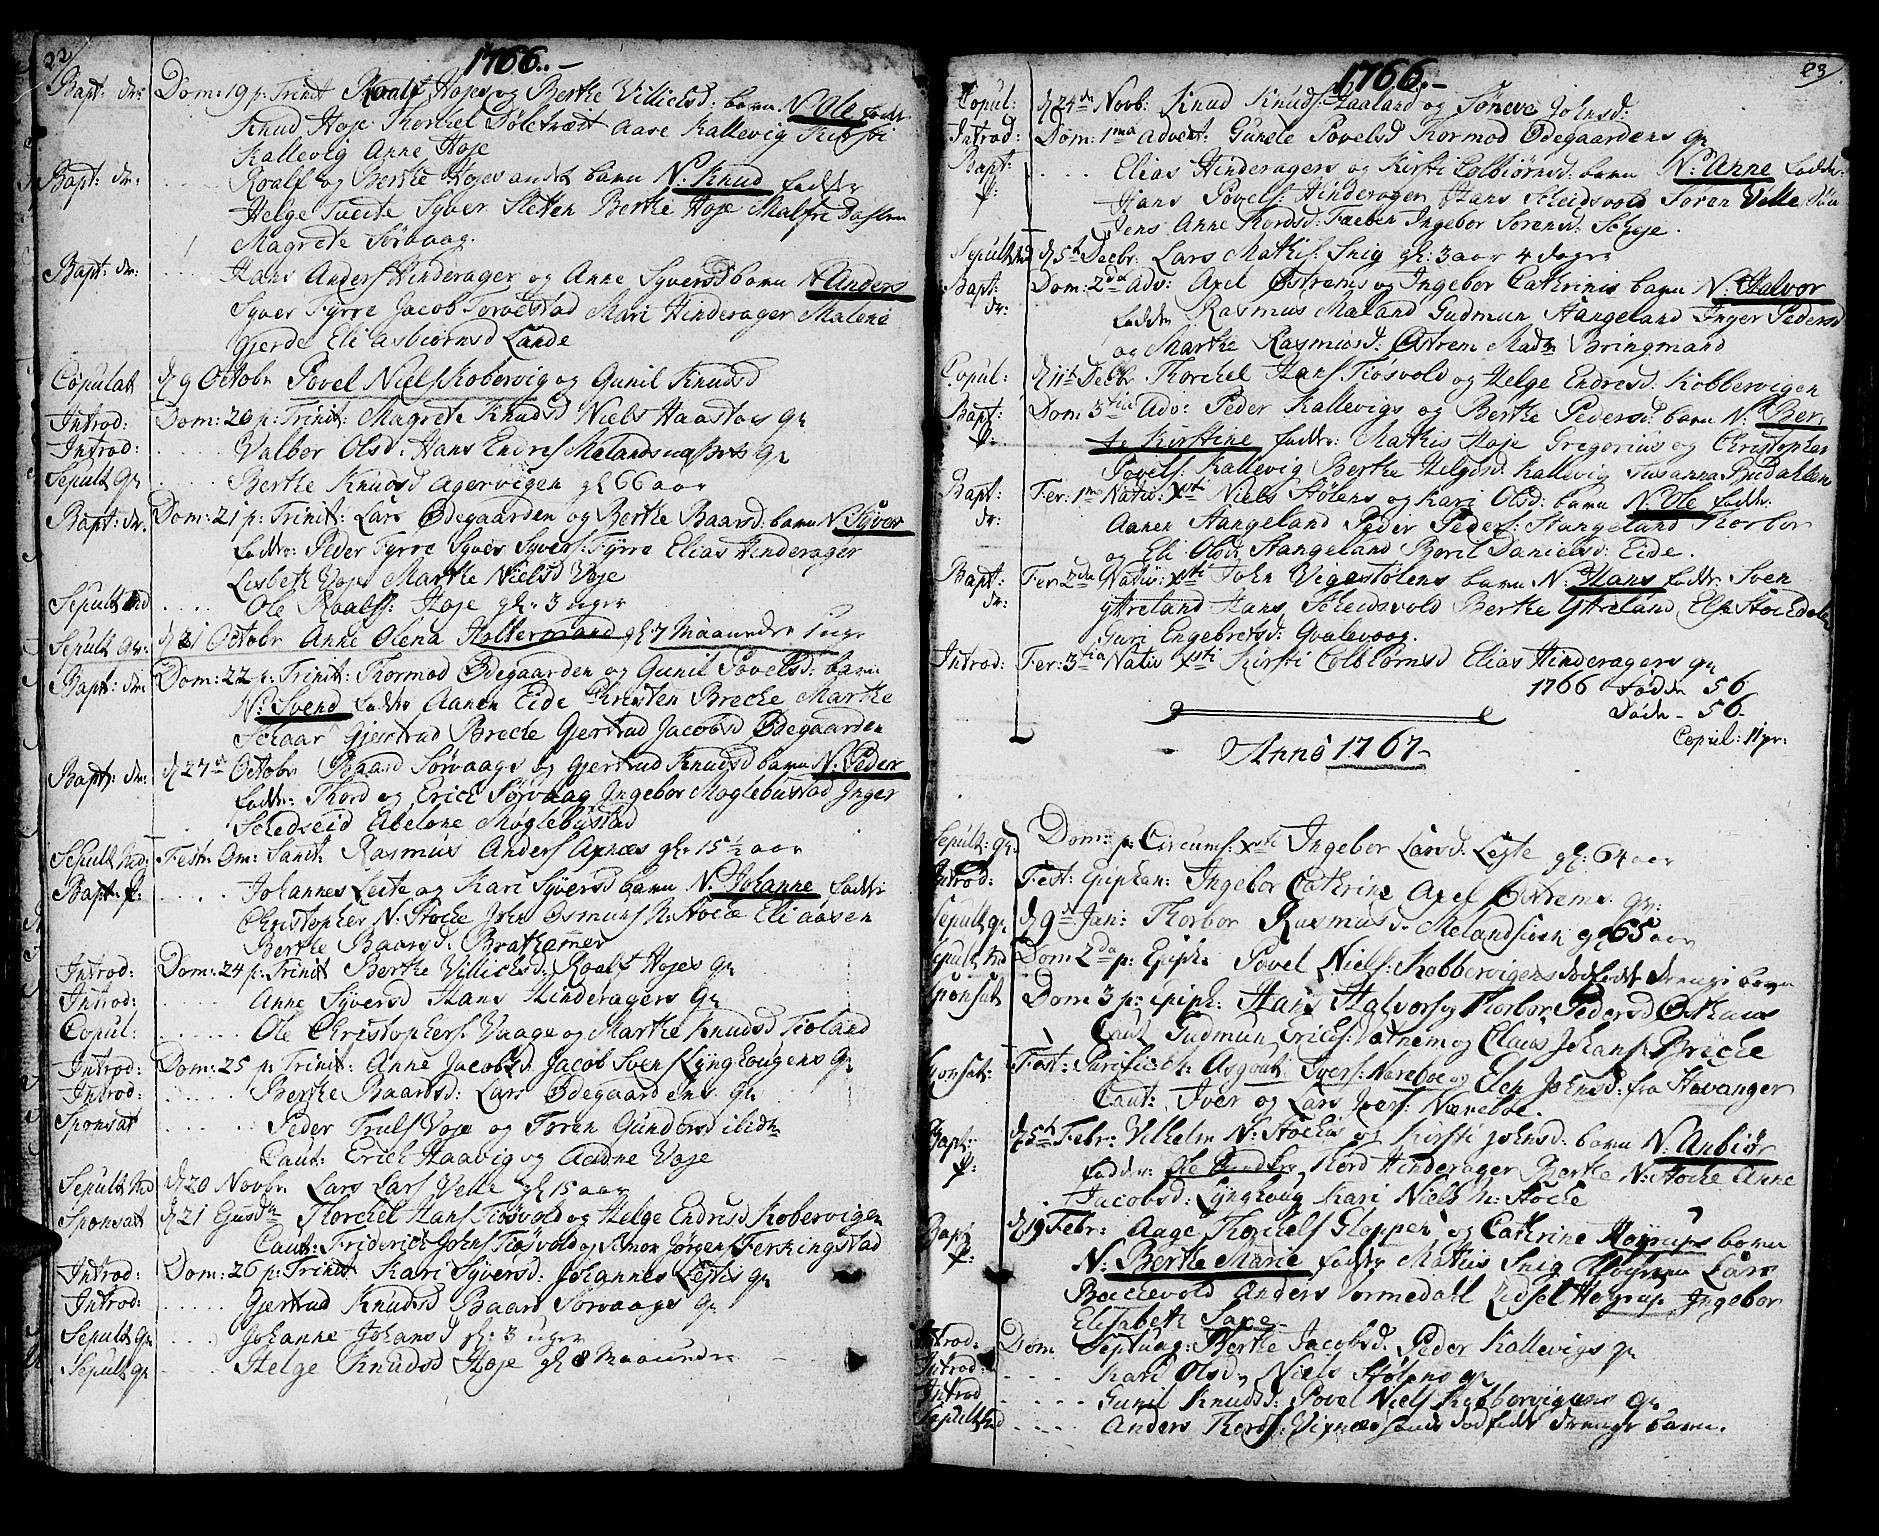 22
1766.
Bapt: dr: Dom: 19 p: Trinit Roalf Hojes og Berthe Villicksd: barn N: Ole fadd:
Knud Hoje Thorckel Aase Kallevig Kirsti
Kallevig Anne Hoje
Bapt: dr: Roalf og Berthe Hojes andet barn N: Knud faddr
Helge Tveite Syver Sleten Berthe Hoje Malfri
Magrete Sørvaag.
Bapt: dr: Hans Anders Hinderager og Anne Syversd barn N Anders
Syver Fyrre Jacob Torvestad Mari Hinderager Malene
Gjerde Eli Asbiørnsd Lande
Copulat d 9 Octobr Povel Niels Kobervig og Gunil Knudsd
Introd: Dom: 20 p: Trinit: Magrete Knudsd Niels Haastøes qv
Introd: Valbor Olsd: Hans Endres qv
Sepult qv Berthe Knudsd Agervigen gl 66 aar
Bapt: dr. Dom: 21 p: Trinit: Lars Ødegaarden og Berthe Baarsd: barn N Syver
faddr: Peder Fyrre Syver Syvers: Fyrre Elias Hinderager
Lisbeth Voje Marthe Nielsd Voje
Sepult Ole Roalfs: Hoje gl: 3 uger
Sepult qv: d 21 Octobr Anne Olena gl 7 Maaneder 1 uge
Bapt: dr: Dom: 22 p: Trinit: Thormod Ødegaarden og Gunil Povelsd: barn
N: Svend faddr Aanen Eide Christen Brecke Marthe
Schaar Gjertrud Brecke Gjertrud Jacobsd Ødegaarden
Bapt: dr: d 27 Octobr Baard Sørvaags og Gjertrud Knudsd barn N: Peder
faddr: Thord og Erich Sørvaag Ingebor Moglebustad Inger
Schedseid Abelone Moglebustad
Sepult Fest: Om: Sanct: Rasmus Anders gl: 15 ½ aar
Bapt: p: Johannes Leite og Kari Syversd barn N. Johanne faddr:
Christopher N: Stocke John Osmuns N: Stocke Eli Aasen
Berthe Baarsd: Bratkamer
Introd: Dom: 24 p: Trinit Berthe Villicksd: Roalf Hojes qv
Introd: Anne Syversd Hans Hinderagers qv
Copul: Ole Christophers: Vaage og Marthe Knudsd
Introd: Dom: 25 p: Trinit: Anne Jacobsd Jacob Svens Lynghougens qv
Introd: Berthe Baarsd: Lars Ødegaardens qv
Sponsat Peder Truls Voje og Toren Gundersd
Caut: Erich Haavig og Aadne Voje
Sepult d 20 Novbr Lars Lars Velle gl 15 aar
Sponsat d 21 Thorckel Hans Tiøsvold og Helge Endresd Kobervigen
Caut: Friderich Johns Tiøsvold og Simon Jørgens Ferkingstad
Introd: Dom: 26 p: Trinit Kari Syversd: Johannes Leites qv
Introd: Gjertrud Knudsd Baard Sørvaags qv
Sepult qv Johanne Johansd gl: 3 uger
Sepult qv Helge Knudsd Hoje gl 8 Maaneder
23
1766.
Copul: d 24 Novb: Knud Knuds Haaland og Søneve Johnsd:
Introd: Dom: 1ma Advent: Gunele Povelsd Thormod Ødegaardens qv
Bapt: p: Elias Hinderagers og Kirsti Colbiørnsd: barn N: Anne faddr:
Hans Povels: Hinderager Hans Scheidsvold Søren Velle
Jens Anne Thordsd: Ingebor Sørensd:
Sepult d 5 Decbr: Lars Mathis: Snig gl: 3 aar 4 dage
Bapt: dr: Dom: 2da Adv: Axel Østrems og Ingebor Cathrines barn N: Halvor
faddr Rasmus Maland Gudmun Stangeland Inger Pedersd
og Marthe Rasmusd: Østrem Madm Bringmand
Copul: d 11t Decbr Thorckel Hans: Tiøsvold og Helge Endresd: Kobbervigen
Bapt: p: Dom: 3tia Adv: Peder Kallevigs og Berthe Pedersd: barn N: Ber
te Kirstine faddr: Mathis Hoje Gregorius og Christopher
Povels: Kallevig Berthe Helgesd: Kallevig Susanna Budahlen
Bapt: dr: Fer: 1ma Nativ: Xsti Niels Stølens og Kari Olsd: barn N: Ole faddr:
Aanen Stangeland Peder Peders: Stangeland Thorbor
og Eli Olsd: Stangeland Boril Danielsd: Eide.
Bapt: dr: Fer 2da Nativ: Xsti John Vigestølens barn N: Hans faddr: Sven
Yttreland Hans Scheidsvold Berthe Yttreland Elsi Stockdalen
Guri Engebretsd: Qvalevaag.
Introd: Fer: 3tia Nativ Xsti Kirsti Colbiornsd Elias Hinderagers qv
1766 fødde 56
Døde - 56
Copul: 11 pr:
Anno 1767
Sepult: qv: Dom: p: Circums: Xsti Ingebor Larsd: Leite gl: 64 aar
Introd: Fest: Epiphan: Ingebor Cathrine Axel Østrems qv:
Sepult qv d 9 Jan: Thorbor Rasmusd. gl 65 aar
Sepult Dom 2da p: Epiph: Povel Niels: Kobbervigens dødfødt drenge barn
Sponsat Dom 3 p: Epiph: Hans Halvors og Thorbor Pedersd Østhuus
Caut Gudmun Erichs: Vatnem og Claus Johans: Brecke
Fest: Purific: Asgout Ivers: Næreboe og Elen Johnsd: fra Stavanger
Caut: Iver og Lars Ivers: Næreboe.
Bapt: p: d 5t Febr: Vilhelm N: Stockes og Kirsti Johnsd: barn N: Anbiør
faddr: Ole Thord Hinderager Berthe N: Stocke Anne
Jacobsd: Lynghoug Kari Niels N: Stocke
Bapt p: d 19 Febr: Aage Thorckels Gloppen og Cathrine Høyrups barn
N: Berthe Marie faddr Mathis Snig Lars
Backevold Anders Tormedahl Zidsel Høyrup Ingebor
Elisabeth Saxe
Introd: Dom Septuag: Berthe Jacobsd: Peder Kallevigs qv
Introd: Kari Olsd, Niels Stølens qv
Introd Gunil Knudsd: Povel Niels Kobbervigens qv
Sepult Anders Thords: dødfødt drenge barn.